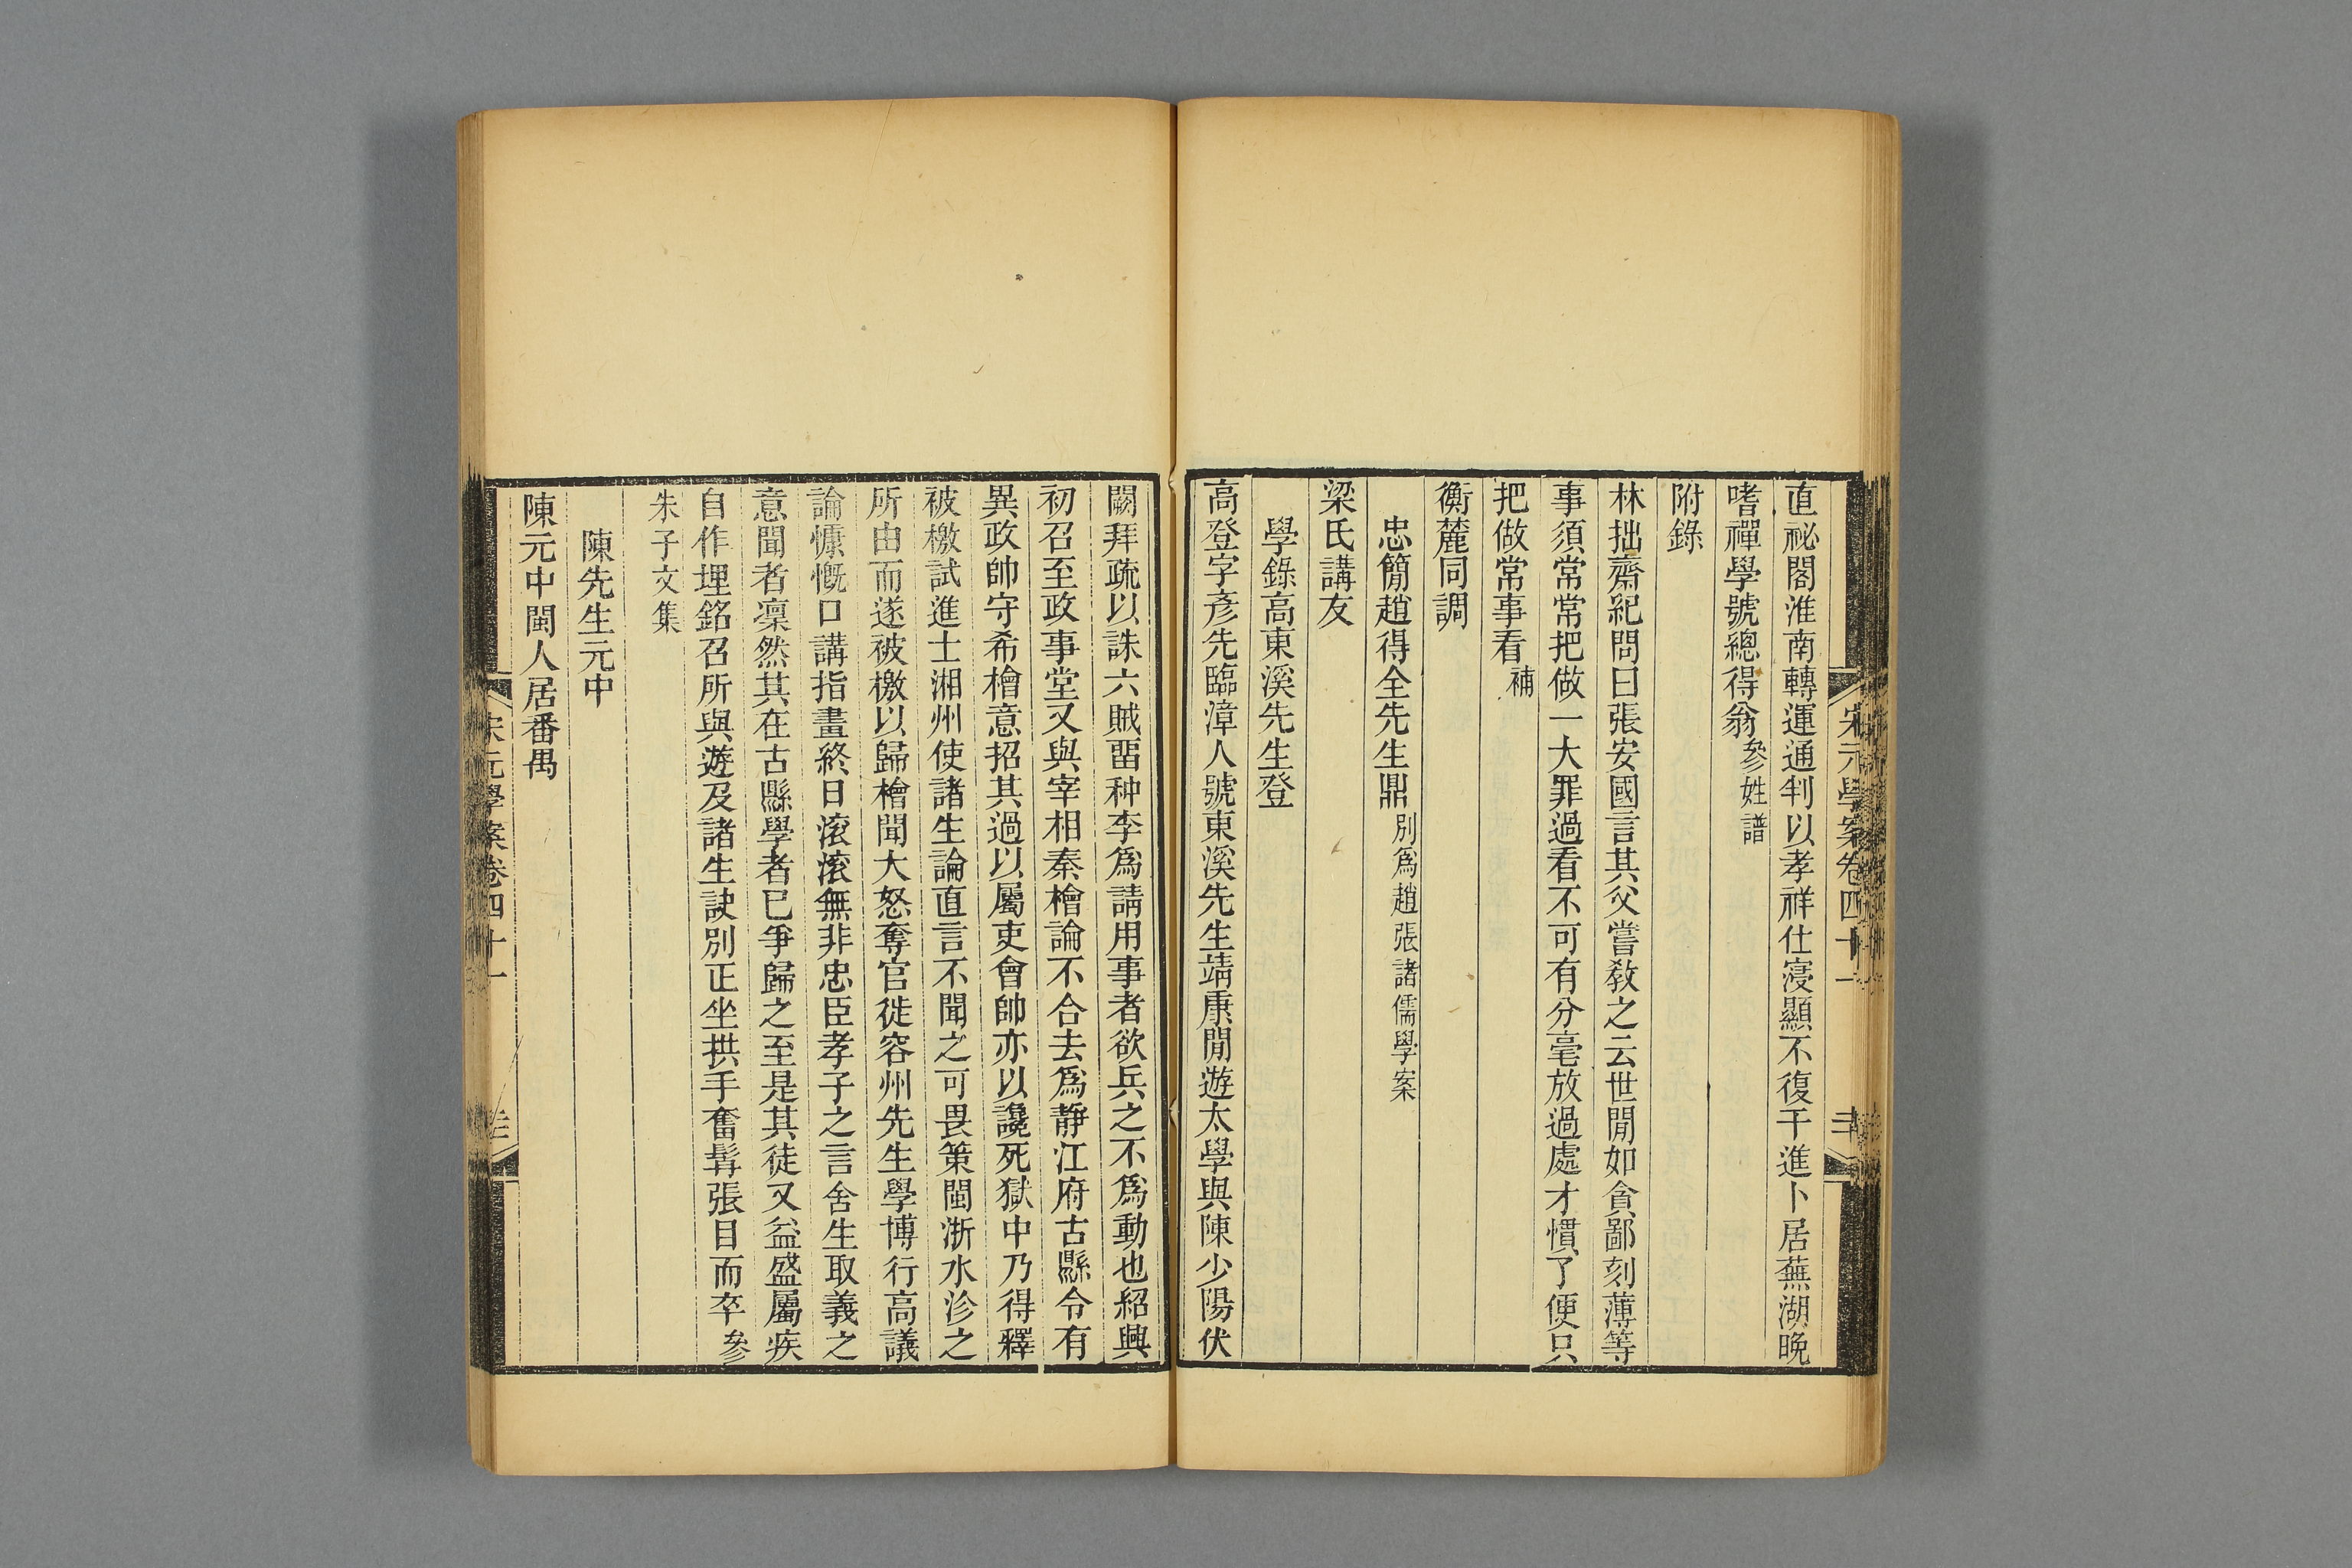 宋元學案卷四十一
直祕閣淮南轉運通判以孝祥仕寖顯不復干進卜居蕪湖晚
嗜禪學號總得翁參姓譜
附錄
林拙齋紀問曰張安國言其父嘗敎之云世閒如貪鄙刻薄等
事須常常把做一大罪過看不可有分毫放過處才慣了便只
把做常事看補
衡麓同調
忠簡趙得全先生鼎別爲趙張諸儒學案
梁氏講友
學錄高東溪先生登
高登字彥先臨漳人號東溪先生靖康閒遊太學與陳少陽伏
闕拜疏以誅六賊畱种李爲請用事者欲兵之不爲動也紹興
初召至政事堂又與宰相秦檜論不合去爲靜江府古縣令有
異政帥守希檜意招其過以屬吏會帥亦以讒死獄中乃得釋
被檄試進士湘州使諸生論直言不聞之可畏策閩浙水沴之
所由而遂被檄以歸檜聞大怒奪官徙容州先生學博行高議
論慷慨口講指畫終日滚滚無非忠臣孝子之言舍生取義之
意聞者凜然其在古縣學者已爭歸之至是其徒又益盛屬疾
自作埋銘召所與遊及諸生訣別正坐拱手奮髯張目而卒參
朱子文集
陳先生元中
陳元中閩人居番禺
宋元學案卷四十一